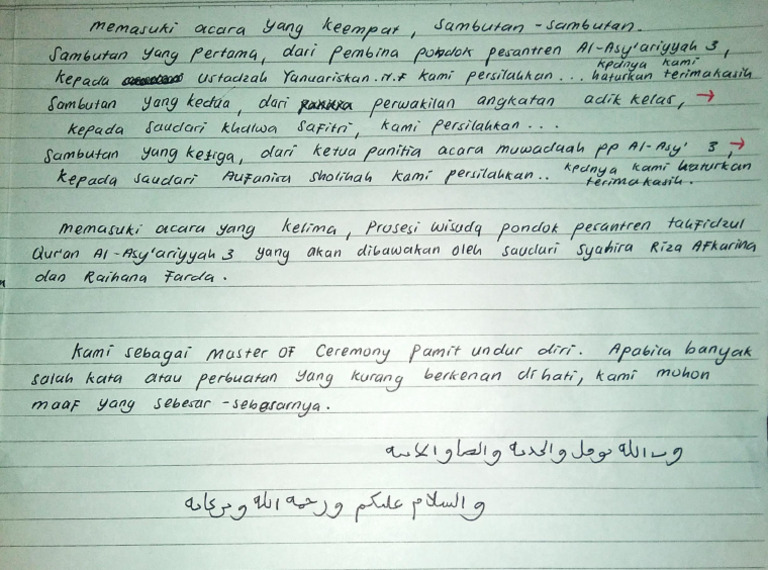 memasuki acara yang keempat, sambutan-sambutan.
Sambutan yang pertama, dari pembina pondok pesantren Al-Asy'ariyyah 3,
kepada ustadzah Yanuariskan.N.F kami persilahkan... kpdnya kami haturkan terimakasih
Sambutan yang kedua, dari perwakilan angkatan adik kelas, →
kepada saudari khalwa safitri, kami persilahkan...
Sambutan yang ketiga, dari ketua panitia acara muwadaah pp Al-Asy' 3, →
kepada saudari Aufanisa sholihah kami persilahkan.. kpdnya kami haturkan terimakasih.
memasuki acara yang kelima, prosesi wisuda pondok pesantren tahfidzul
Qur'an Al-Asy'ariyyah 3 yang akan dibawakan oleh saudari syahira Riza Afkarina
dan Raihana Farda.
Kami sebagai Master OF Ceremony pamit undur diri. Apabila banyak
salah kata atau perbuatan yang kurang berkenan di hati, kami mohon
maaf yang sebesar-sebesarnya.
والسلام عليكم ورحمة الله وبركاته